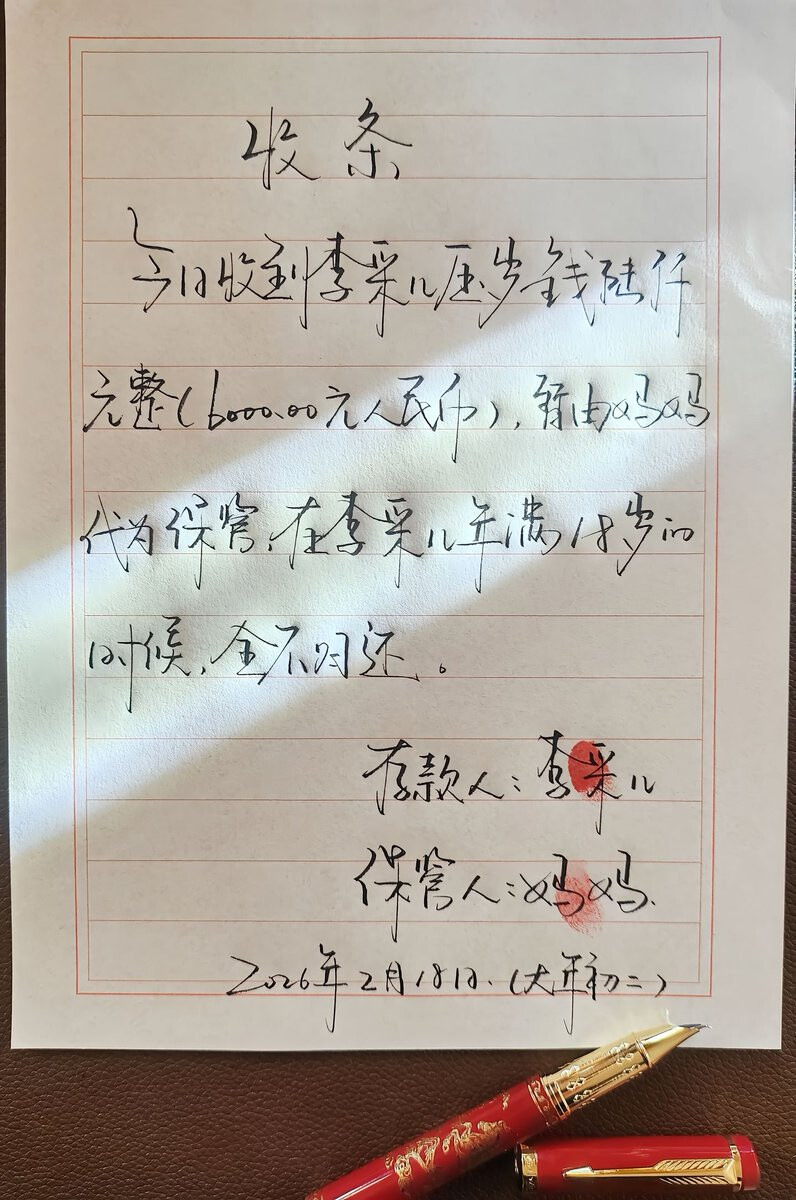 收条
今日收到李采儿压岁钱陆仟
元整(6000.00元人民币),暂由妈妈
代为保管,在李采儿年满18岁的
时候,全不归还。
存款人:李采儿
保管人:妈妈.
2026年2月18日.(大年初二)